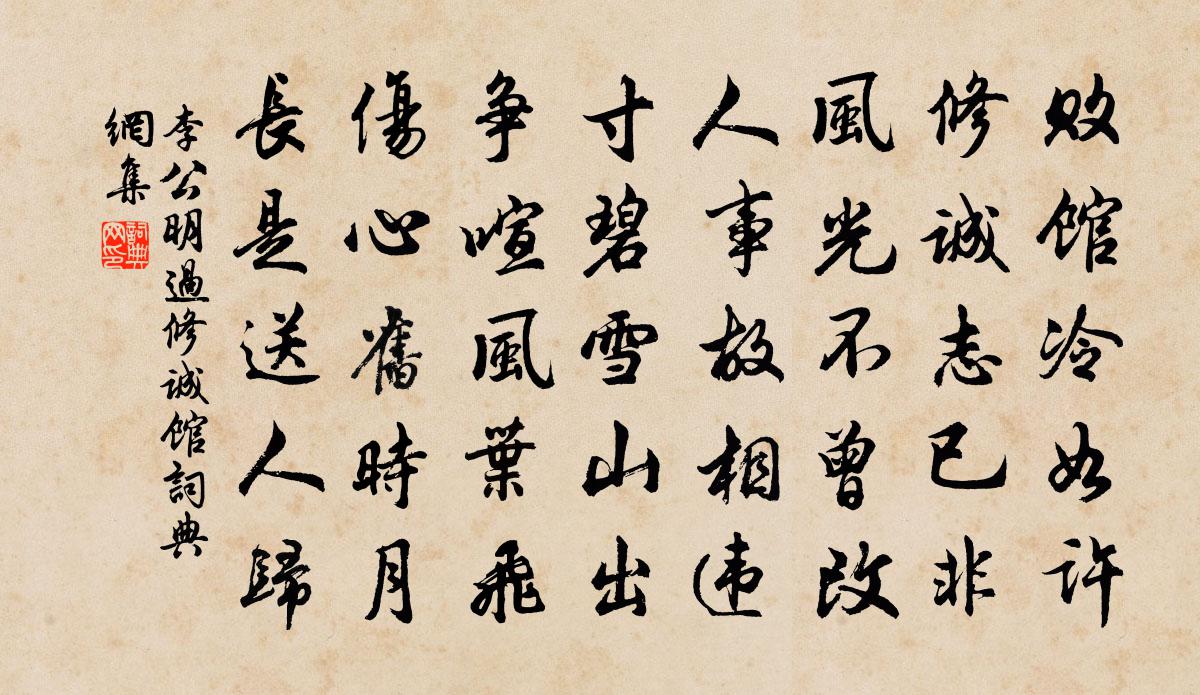 敗館冷如許
修誠志已非
風光不曾改
人事故相違
寸碧雪山出
爭喧風葉飛
傷心舊時月
長是送人歸
李公明過修誠館詞典
網集
詞典
网印